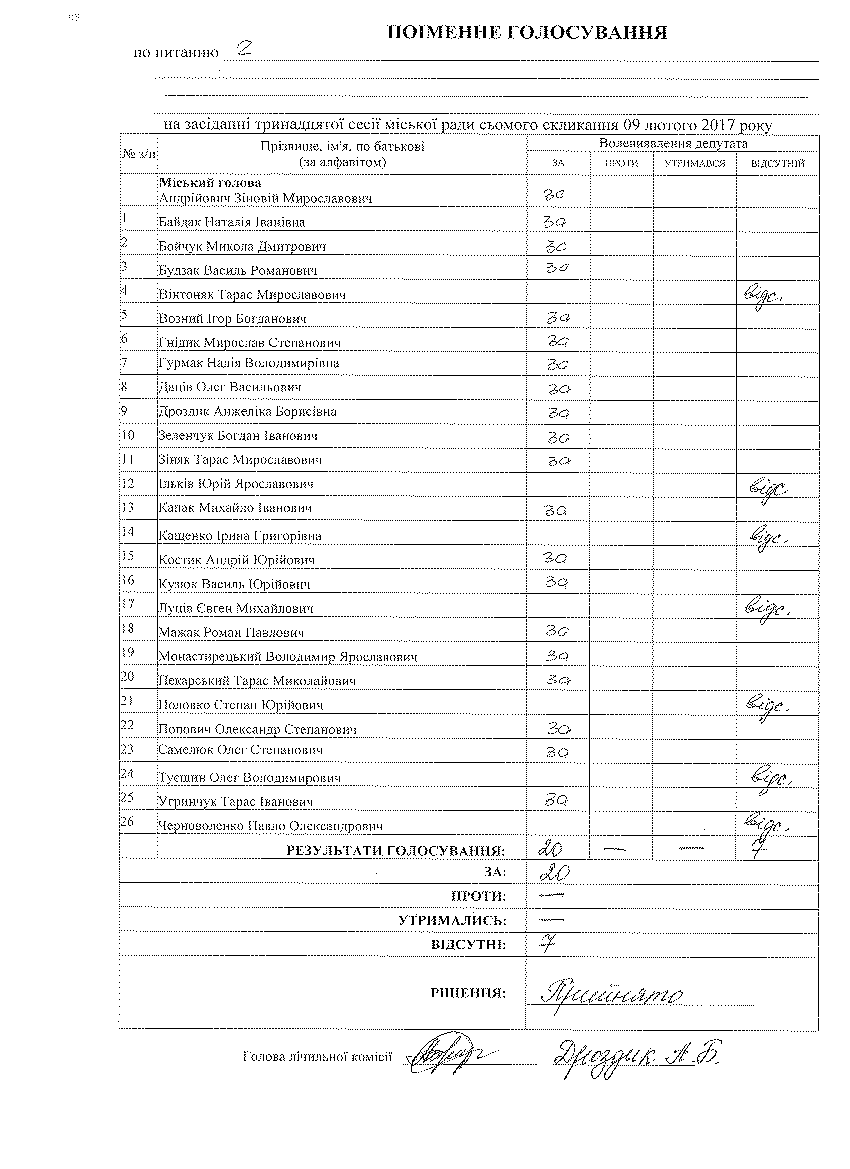 ПОІМЕННЕ ГОЛОСУВАННЯ
по питанню 2
на засіданні тринадцятої сесії міської ради сьомого скликання 09 лютого 2017 року
№ з/п Прізвище, ім'я, по батькові (за алфавітом) Волевиявлення депутата
ЗА ПРОТИ УТРИМАВСЯ ВІДСУТНІЙ
Міський голова
Андрійович Зіновій Мирославович за
1 Байдак Наталія Іванівна за
2 Бойчук Микола Дмитрович за
3 Будзак Василь Романович за
4 Вінтоняк Тарас Мирославович відс.
5 Возний Ігор Богданович за
6 Гнідик Мирослав Степанович за
7 Гурмак Надія Володимирівна за
8 Даців Олег Васильович за
9 Дроздик Анжеліка Борисівна за
10 Зеленчук Богдан Іванович за
11 Зіняк Тарас Мирославович за
12 Ільків Юрій Ярославович відс.
13 Капак Михайло Іванович за
14 Кащенко Ірина Григорівна відс.
15 Костик Андрій Юрійович за
16 Кузюк Василь Юрійович за
17 Луців Євген Михайлович відс.
18 Мажак Роман Павлович за
19 Монастирецький Володимир Ярославович за
20 Пекарський Тарас Миколайович за
21 Половко Степан Юрійович відс.
22 Попович Олександр Степанович за
23 Самелюк Олег Степанович за
24 Туєшин Олег Володимирович відс.
25 Угринчук Тарас Іванович за
26 Черноволенко Павло Олександрович відс.
РЕЗУЛЬТАТИ ГОЛОСУВАННЯ: 20 — — 7
ЗА: 20
ПРОТИ: —
УТРИМАЛИСЬ: —
ВІДСУТНІ: 7
РІШЕННЯ: Прийнято
Голова лічильної комісії Дроздик А.Б.